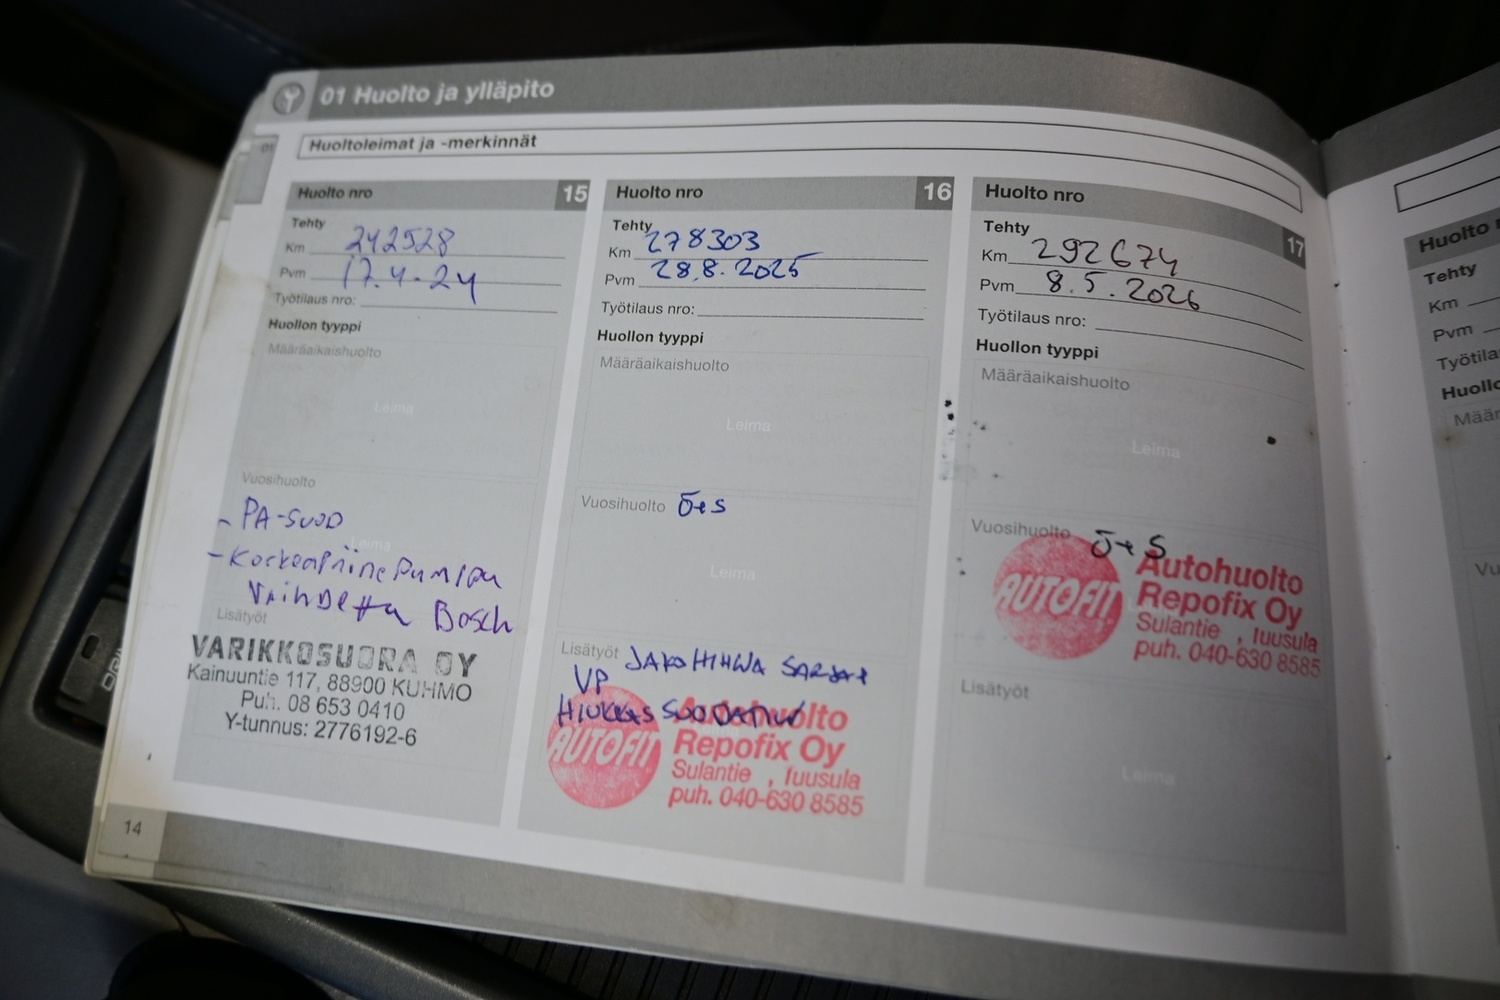 01 Huolto ja ylläpito
01
Huoltoleimat ja -merkinnät
Huolto nro 15
Tehty
Km 242528
Pvm 17.4.24
Työtilaus nro:
Huollon tyyppi
Määräaikaishuolto
Leima
Vuosihuolto
- PA-SUOD
Leima
- Korkeapaine Pumppu
Vaihdettu Bosch
Lisätyöt
VARIKKOSUORA OY
Kainuuntie 117, 88900 KUHMO
Puh. 08 653 0410
Y-tunnus: 2776192-6
14
Huolto nro 16
Tehty
Km 278303
Pvm 28.8.2025
Työtilaus nro:
Huollon tyyppi
Määräaikaishuolto
Leima
Vuosihuolto Ö+S
Leima
Lisätyöt JAKOHIHNA SARJA+
VP
HIUKKASSUODATIN
AUTOFIT
Autohuolto
Repofix Oy
Sulantie , Tuusula
puh. 040-630 8585
Huolto nro 17
Tehty
Km 292674
Pvm 8.5.2026
Työtilaus nro:
Huollon tyyppi
Määräaikaishuolto
Leima
Vuosihuolto Ö+S
AUTOFIT
Autohuolto
Repofix Oy
Sulantie , Tuusula
puh. 040-630 8585
Lisätyöt
Leima
Huolto
Tehty
Km
Pvm